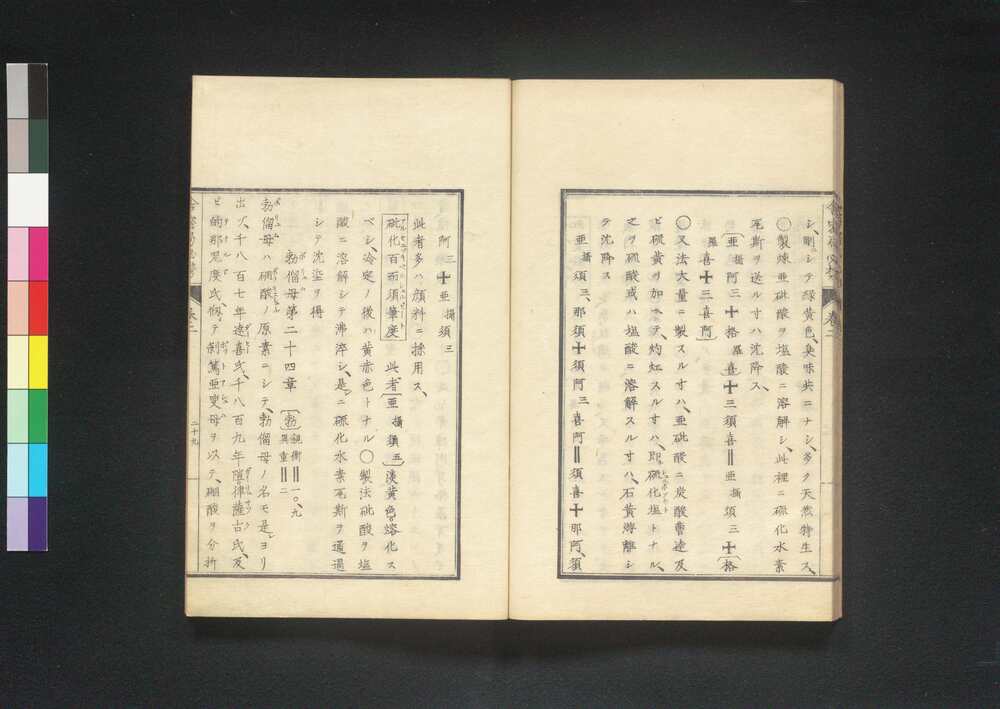 シ、劘シテ緑黄色、臭味共ニナシ、多ク天然特生ス、
◯製煉亜砒酸ヲ塩酸ニ溶解シ、此裡ニ硫化水素
瓦斯ヲ送ル寸ハ沈降ス、
〔亜攝阿三十格羅喜十三須喜‖亜攝須三十〔格
羅喜十三喜阿〕
◯又法大量ニ製スル寸ハ、亜砒酸ニ炭酸曹達及
ビ硫黄ヲ加ヘテ、灼㶡スル寸ハ、即硫化塩トナル、
之ヲ硝酸或ハ塩酸ニ溶解スル寸ハ、石黄游離シ
テ沈降ス
亜攝須三、那須十須阿三喜阿‖須喜十那阿、須
阿三十亜攝須三
此者多ハ顔料ニ採用ス、
砒化百而須筆度 此者〔亜攝須五〕淡黄色熔化ス
ベシ、冷定ノ後ハ黄赤色トナル◯製法砒酸ヲ塩
酸ニ溶解シテ沸淬シ、是ニ硫化水素瓦斯ヲ通過
シテ沈垽ヲ得
勃㑹母第二十四章 〔勃 親衡‖一〇、九 異重‖二
勃㑹母ハ硼酸ノ原素ニシテ、勃㑹母ノ名モ是ヨリ
出ツ、千八百七年達喜氏、千八百九年瑄律薩古氏、及
ビ的那尼度氏、剥篤亜叟母ヲ以テ、硼酸ヲ分析
卷二
二十九